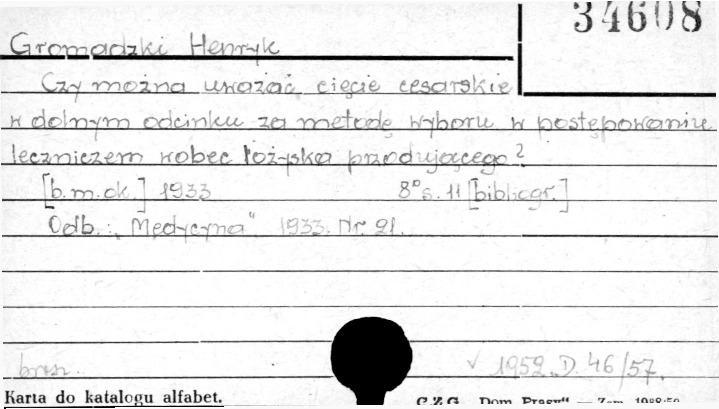 34608
Gromadzki Henryk
Czy można uważać cięcie cesarskie
w dolnym odcinku za metodę wyboru w postępowaniu
leczniczem wobec łożyska przodującego?
[b.m.dr.] 1933 8° s. 11 [bibliogr.]
Odb.: „Medycyna". 1933. Nr. 21.
brosz. √ 1952.D. 46/57.
Karta do katalogu alfabet. C.Z.G. „Dom Prasy" — Zam.